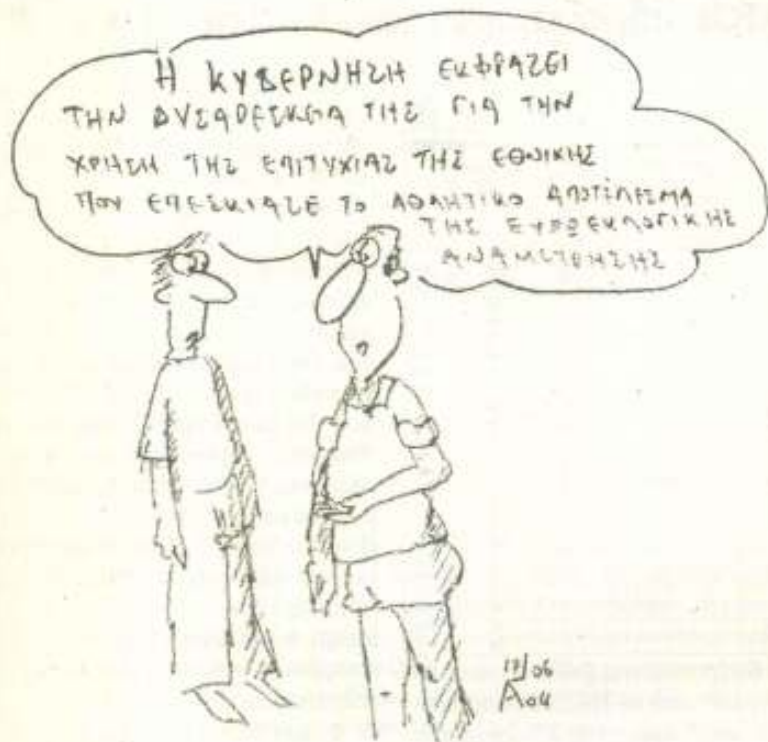 Η ΚΥΒΕΡΝΗΣΗ ΕΚΦΡΑΖΕΙ
ΤΗΝ ΔΥΣΑΡΕΣΚΕΙΑ ΤΗΣ ΓΙΑ ΤΗΝ
ΧΡΗΣΗ ΤΗΣ ΕΠΙΤΥΧΙΑΣ ΤΗΣ ΕΘΝΙΚΗΣ
ΠΟΥ ΕΠΕΣΚΙΑΣΕ ΤΟ ΑΘΛΗΤΙΚΟ ΑΠΟΤΕΛΕΣΜΑ
ΤΗΣ ΕΥΡΩΕΚΛΟΓΙΚΗΣ
ΑΝΑΜΕΤΡΗΣΗΣ
17/06
Α04